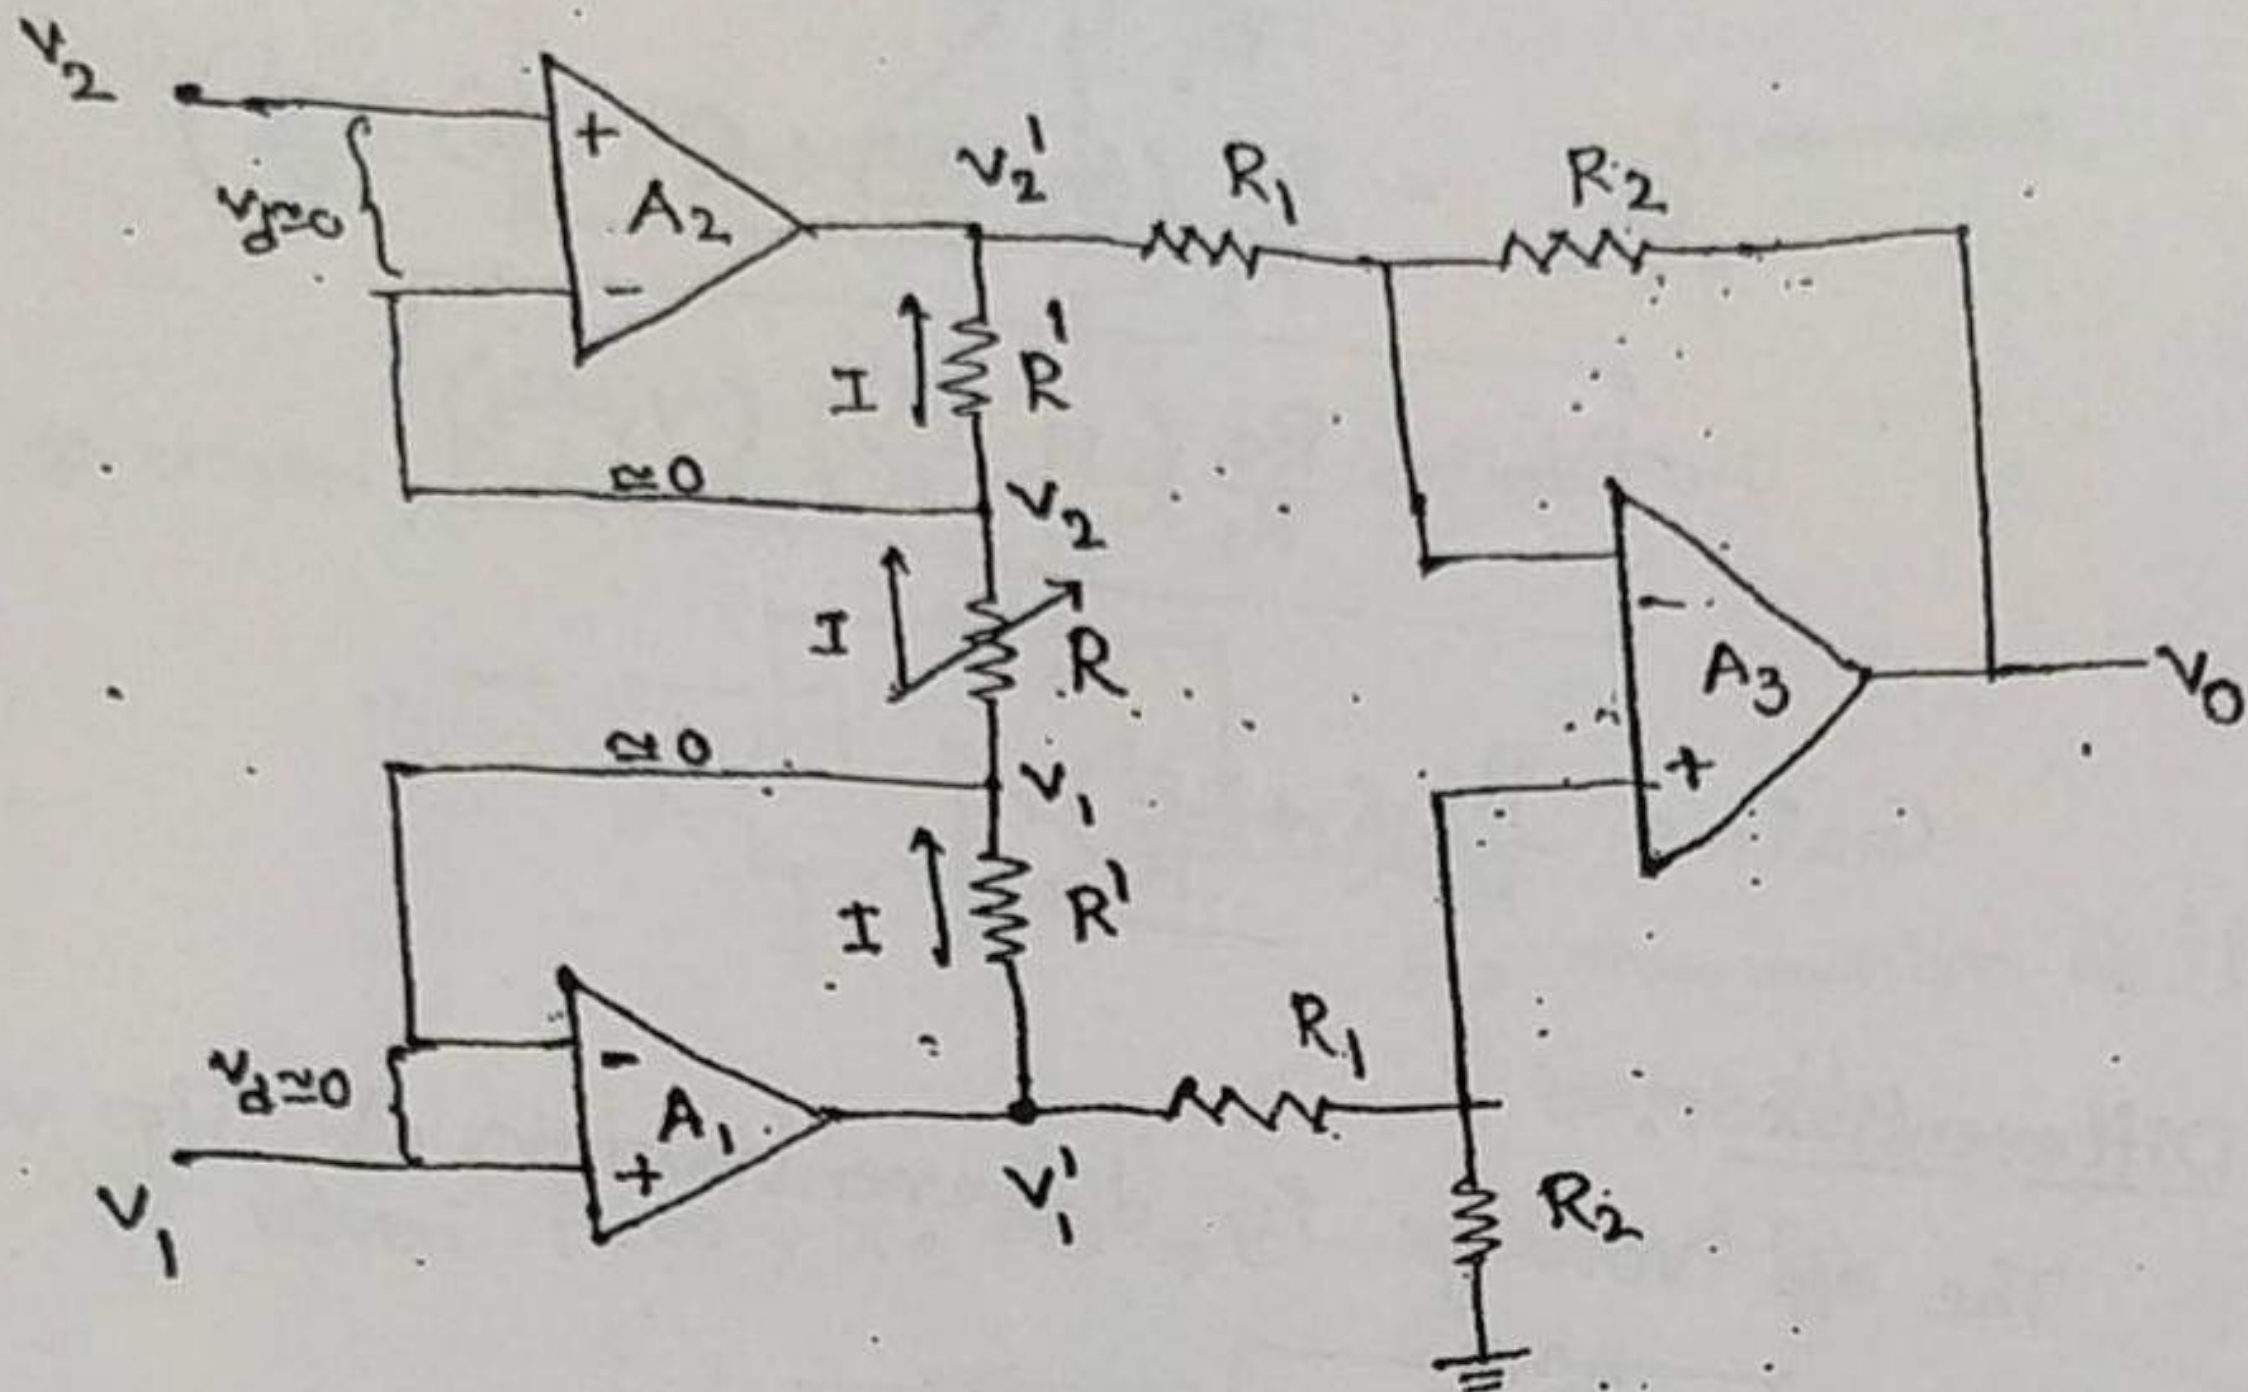 V2
+
A2
-
Vd≃0
V2'
R1
R2
I
R'
≃0
V2
I
R
-
A3
+
V0
≃0
V1
I
R'
R1
Vd≃0
-
A1
+
V1
V1'
R2